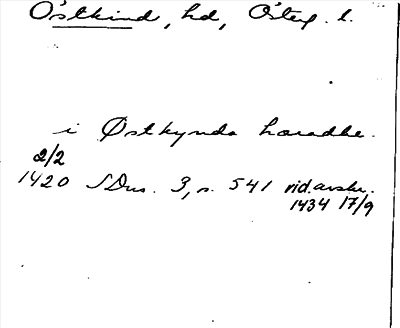 Östkind, hd, Österg. l.
i Østkynda hæradhe.
2/2
1420 SDns. 3, s. 541 vid. avskr.
1434 17/9